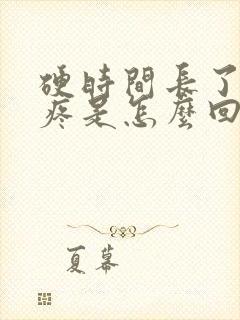 硬時間長了
疼是怎麼回
夏幕